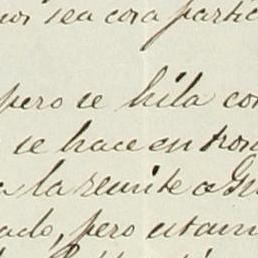 nos sea cosa partic
pero se hila con
se hace en tron
a la remite a Gu
ado, pero estam